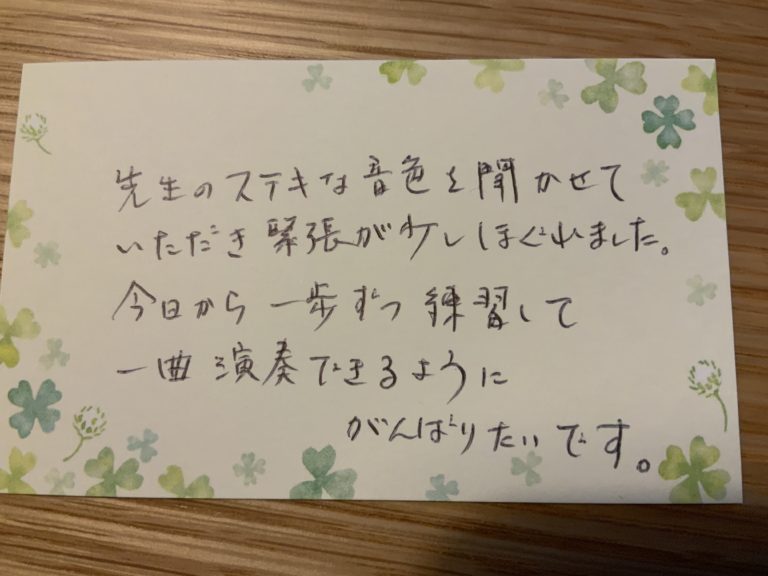 先生のステキな音色を聞かせて
いただき緊張が少しほぐれました。
今日から一歩ずつ練習して
一曲演奏できるように
がんばりたいです。